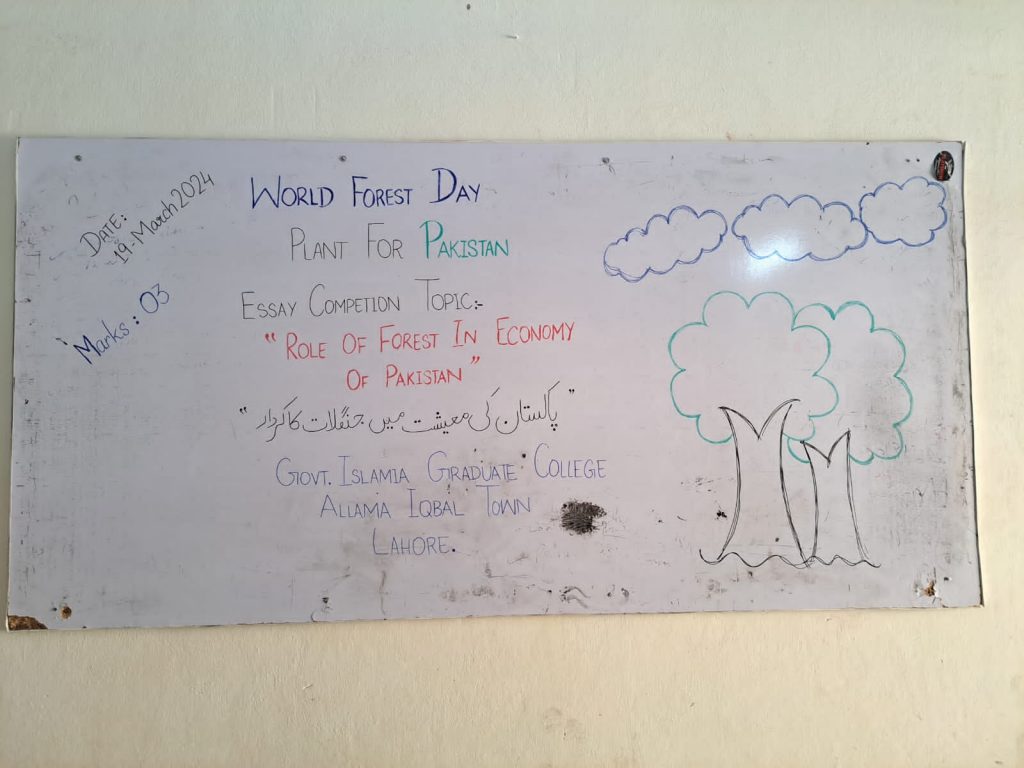 DATE:
19-March 2024
Marks : 03
WORLD FOREST DAY
PLANT FOR PAKISTAN
ESSAY COMPETION TOPIC:-
“ ROLE OF FOREST IN ECONOMY
OF PAKISTAN ”
" پاکستان کی معیشت میں جنگلات کا کردار "
GOVT. ISLAMIA GRADUATE COLLEGE
ALLAMA IQBAL TOWN
LAHORE.